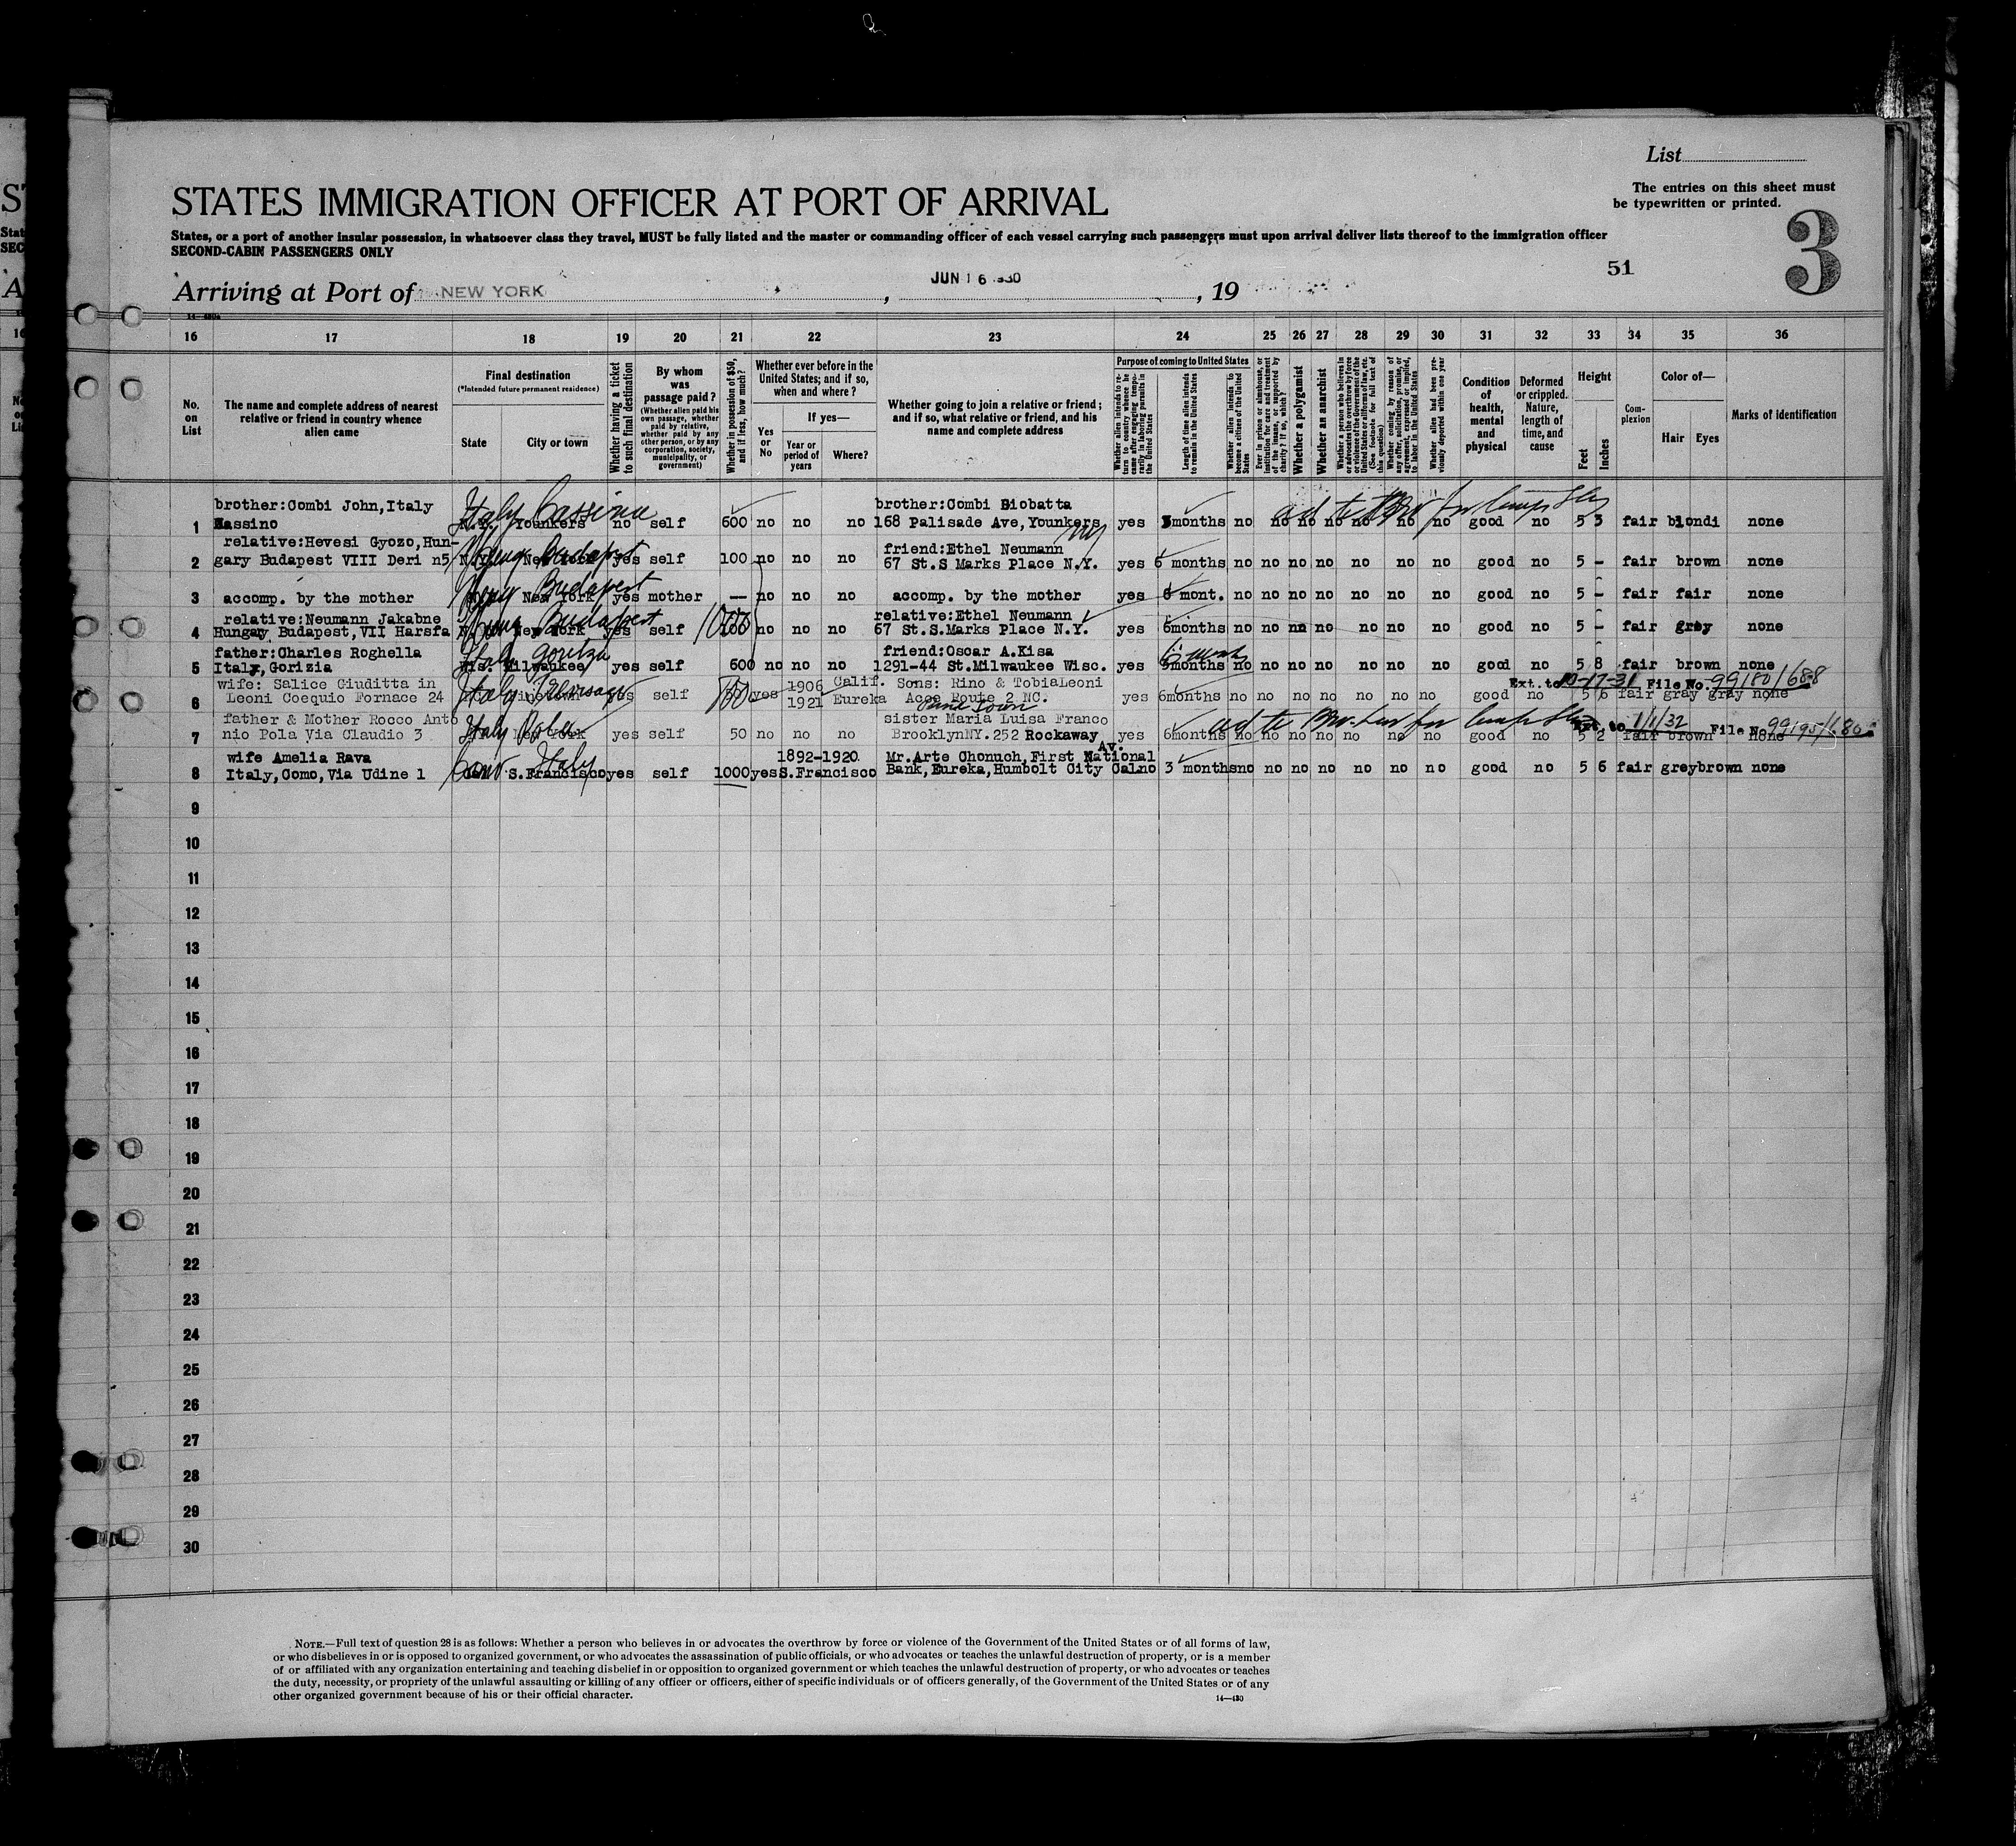 List
The entries on this sheet must
be typewritten or printed.
STATES IMMIGRATION OFFICER AT PORT OF ARRIVAL
3
States, or a port of another insular possession, in whatsoever class they travel, MUST be fully listed and the master or commanding officer of each vessel carrying such passengers must upon arrival deliver lists thereof to the immigration officer
SECOND-CABIN PASSENGERS ONLY
51
Arriving at Port of NEW YORK, JUN 16 1930, 19
16 17 18 19 20 21 22 23 24 25 26 27 28 29 30 31 32 33 34 35 36
No. on List
The name and complete address of nearest relative or friend in country whence alien came
Final destination
(*Intended future permanent residence)
State
City or town
Whether having a ticket to such final destination
By whom was passage paid?
(Whether alien paid his own passage, whether paid by relative, whether paid by any other person, or by any corporation, society, municipality, or government)
Whether in possession of $50, and if less, how much?
Whether ever before in the United States; and if so, when and where?
Yes or No
If yes—
Year or period of years
Where?
Whether going to join a relative or friend; and if so, what relative or friend, and his name and complete address
Purpose of coming to United States
Whether alien intends to return to country whence he came after engaging temporarily in laboring pursuits in the United States
Length of time alien intends to remain in the United States
Whether alien intends to become a citizen of the United States
Ever in prison or almshouse, or institution for care and treatment of the insane, or supported by charity? If so, which?
Whether a polygamist
Whether an anarchist
Whether a person who believes in or advocates the overthrow by force or violence of the Government of the United States or all forms of law, etc. (See footnote for full text of this question)
Whether coming by reason of any offer, solicitation, promise, or agreement, expressed or implied, to labor in the United States
Whether alien had been previously deported within one year
Condition of health, mental and physical
Deformed or crippled. Nature, length of time, and cause
Height
Feet
Inches
Complexion
Color of—
Hair
Eyes
Marks of identification
brother:Combi John,Italy Italy Cassina brother:Combi Biobatta
1 Massino N.Y. Younkers no self 600 no no no 168 Palisade Ave,Younkers NY yes 3months no no no no no no no good no 5 3 fair blondi none
relative:Hevesi Gyozo,Hun- Hung Budapest friend:Ethel Neumann
2 gary Budapest VIII Deri n5 N.Y. New York yes self 100 no no no 67 St.S Marks Place N.Y. yes 6 months no no no no no no no good no 5 - fair brown none
Budapest
3 accomp. by the mother New York yes mother — no no no accomp. by the mother yes 6 mont. no no no no no no no good no 5 - fair fair none
relative:Neumann Jakabne Budapest relative:Ethel Neumann
4 Hungay Budapest,VII Harsfa New York yes self 100 no no no 67 St.S.Marks Place N.Y. yes 6months no no nn no no no no good no 5 - fair grey none
father:Charles Roghella Italy Gorizia friend:Oscar A.Kisa 6 months
5 Italy, Gorizia Wis. Milwaukee yes self 600 no no no 1291-44 St.Milwaukee Wisc. yes months no no no no no no no good no 5 8 fair brown none
wife: Salice Giuditta in Italy 1906 Calif. Sons: Rino & TobiaLeoni Ext. to 10-17-31 File No. 99180/688
6 Leoni Coequio Fornace 24 yes self yes 1921 Eureka Acee Route 2 NC. yes 6months no no no no no no no good no 5 6 fair gray gray none
father & Mother Rocco Anto Italy Pola sister Maria Luisa Franco 1/1/32 File No. 99195/680
7 nio Pola Via Claudio 3 New York yes self 50 no no no BrooklynNY.252 Rockaway Av. yes 6months no no no no no no no good no 5 2 fair brown none
wife Amelia Rava Como Italy 1892-1920 Mr.Arte Chonuch,First National
8 Italy,Como,Via Udine 1 S.Francisco yes self 1000 yes S.Francisco Bank,Eureka,Humbolt City Cal no 3 months no no no no no no no good no 5 6 fair grey brown none
9
10
11
12
13
14
15
16
17
18
19
20
21
22
23
24
25
26
27
28
29
30
NOTE.—Full text of question 28 is as follows: Whether a person who believes in or advocates the overthrow by force or violence of the Government of the United States or of all forms of law,
or who disbelieves in or is opposed to organized government, or who advocates the assassination of public officials, or who advocates or teaches the unlawful destruction of property, or is a member
of or affiliated with any organization entertaining and teaching disbelief in or opposition to organized government or which teaches the unlawful destruction of property, or who advocates or teaches
the duty, necessity, or propriety of the unlawful assaulting or killing of any officer or officers, either of specific individuals or of officers generally, of the Government of the United States or of any
other organized government because of his or their official character.
14—430